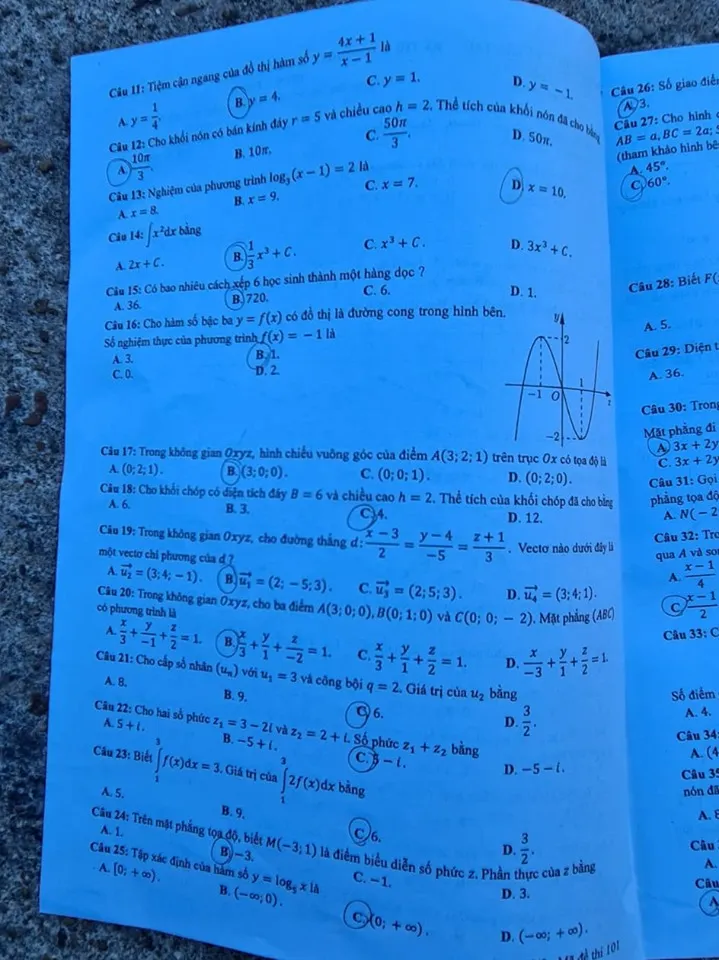 Câu 11: Tiệm cận ngang của đồ thị hàm số y = (4x + 1)/(x − 1) là
A. y = 1/4. B. y = 4. C. y = 1. D. y = −1.
Câu 12: Cho khối nón có bán kính đáy r = 5 và chiều cao h = 2. Thể tích của khối nón đã cho bằng
A. 10π/3. B. 10π. C. 50π/3. D. 50π.
Câu 13: Nghiệm của phương trình log₃(x − 1) = 2 là
A. x = 8. B. x = 9. C. x = 7. D. x = 10.
Câu 14: ∫x²dx bằng
A. 2x + C. B. 1/3 x³ + C. C. x³ + C. D. 3x³ + C.
Câu 15: Có bao nhiêu cách xếp 6 học sinh thành một hàng dọc ?
A. 36. B. 720. C. 6. D. 1.
Câu 16: Cho hàm số bậc ba y = f(x) có đồ thị là đường cong trong hình bên.
Số nghiệm thực của phương trình f(x) = −1 là
A. 3. B. 1.
C. 0. D. 2.
y
2
−1 O 1
−2
Câu 17: Trong không gian Oxyz, hình chiếu vuông góc của điểm A(3; 2; 1) trên trục Ox có tọa độ là
A. (0; 2; 1). B. (3; 0; 0). C. (0; 0; 1). D. (0; 2; 0).
Câu 18: Cho khối chóp có diện tích đáy B = 6 và chiều cao h = 2. Thể tích của khối chóp đã cho bằng
A. 6. B. 3. C. 4. D. 12.
Câu 19: Trong không gian Oxyz, cho đường thẳng d: (x − 3)/2 = (y − 4)/−5 = (z + 1)/3. Vectơ nào dưới đây là
một vectơ chỉ phương của d ?
A. u₂⃗ = (3; 4; −1). B. u₁⃗ = (2; −5; 3). C. u₃⃗ = (2; 5; 3). D. u₄⃗ = (3; 4; 1).
Câu 20: Trong không gian Oxyz, cho ba điểm A(3; 0; 0), B(0; 1; 0) và C(0; 0; −2). Mặt phẳng (ABC)
có phương trình là
A. x/3 + y/−1 + z/2 = 1. B. x/3 + y/1 + z/−2 = 1. C. x/3 + y/1 + z/2 = 1. D. x/−3 + y/1 + z/2 = 1.
Câu 21: Cho cấp số nhân (uₙ) với u₁ = 3 và công bội q = 2. Giá trị của u₂ bằng
A. 8. B. 9. C. 6. D. 3/2.
Câu 22: Cho hai số phức z₁ = 3 − 2i và z₂ = 2 + i. Số phức z₁ + z₂ bằng
A. 5 + i. B. −5 + i. C. 5 − i. D. −5 − i.
Câu 23: Biết ∫₁³ f(x)dx = 3. Giá trị của ∫₁³ 2f(x)dx bằng
A. 5. B. 9. C. 6. D. 3/2.
Câu 24: Trên mặt phẳng tọa độ, biết M(−3; 1) là điểm biểu diễn số phức z. Phần thực của z bằng
A. 1. B. −3. C. −1. D. 3.
Câu 25: Tập xác định của hàm số y = log₅ x là
A. [0; +∞). B. (−∞; 0). C. (0; +∞). D. (−∞; +∞).
đề thi 101
Câu 26: Số giao điể
A. 3.
Câu 27: Cho hình
AB = a, BC = 2a;
(tham khảo hình bê
A. 45°.
C. 60°.
Câu 28: Biết F(
A. 5.
Câu 29: Diện t
A. 36.
Câu 30: Tron
Mặt phẳng đi
A. 3x + 2y
C. 3x + 2y
Câu 31: Gọi
phẳng tọa độ
A. N(−2
Câu 32: Tro
qua A và so
A. (x − 1)/4
C. (x − 1)/2
Câu 33: C
Số điểm
A. 4.
Câu 34:
A. (4
Câu 35
nón đã
A. 8
Câu
A.
Câu
A